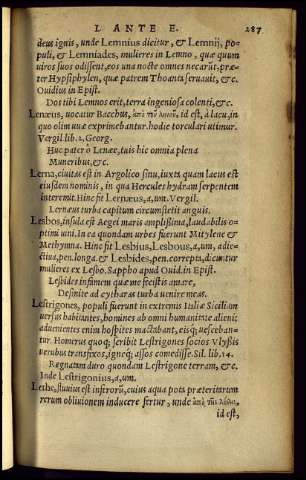 L ANTE E. 287
deus ignis, unde Lemnius dicitur, & Lemnij, po-
puli, & Lemniades, mulieres in Lemno, quæ quum
uiros suos odissent, eos una nocte omnes necarũt, præ-
ter Hypsiphylen, quæ patrem Thoanta seruauit, &c.
Ouidius in Epist.
Dos tibi Lemnos erit, terra ingeniosa colenti, &c.
Lenæus, uocatur Bacchus, ἀπὸ τοῦ ληνοῦ, id est, à lacu, in
quo olim uuæ exprimebantur. hodie torculari utimur.
Vergil. lib. 2. Georg.
Huc pater ô Lenæe, tuis hic omnia plena
Muneribus, &c.
Lerna, ciuitas est in Argolico sinu, iuxta quam lacus est
eiusdem nominis, in qua Hercules hydram serpentem
interemit. Hinc fit Lernæus, a, um. Vergil.
Lernæus turba capitum circumstetit anguis.
Lesbos, insula est Aegei maris amplissima, laudabilis o-
ptimi uini. In ea quondam urbes fuerunt Mitylene &
Methymna. Hinc fit Lesbius, Lesbous, a, um, adie-
ctiua, pen. longa. & Lesbides, pen. correpta, dicuntur
mulieres ex Lesbo. Sappho apud Ouid. in Epist.
Lesbides infamem quæ me fecistis amare,
Desinite ad cytharas turba uenire meas.
Lestrigones, populi fuerunt in extremis Italiæ Siciliam
uersus habitantes, homines ab omni humanitate alieni:
aduenientes enim hospites mactabant, eisq; uesceban-
tur. Homerus quoq; scribit Lestrigones socios Vlyssis
uerubus transfixos, igneq; assos comedisse. Sil. lib. 14.
Regnatum duro quondam Lestrigone terram, &c.
Inde Lestrigonius, a, um.
Lethe, fluuius est inferorũ, cuius aqua pota præteritarum
rerum obliuionem inducere fertur, unde ἀπὸ τῆς λήθης,
id est,